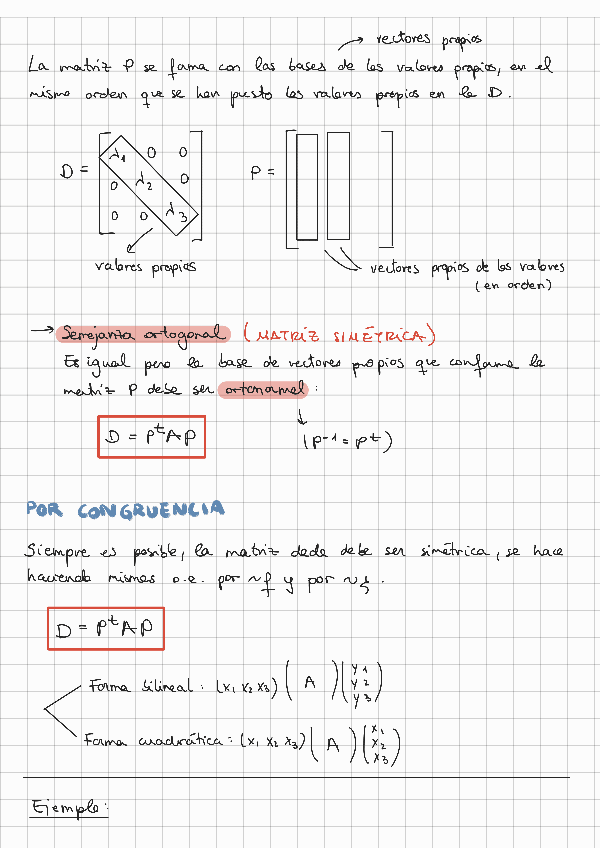 → vectores propios
La matriz P se forma con las bases de los valores propios, en el
mismo orden que se han puesto los valores propios en la D.
D = [ λ1 0 0
0 λ2 0
0 0 λ3 ]
P = [ ]
valores propios
vectores propios de los valores
(en orden)
→ Semejanza ortogonal (MATRIZ SIMÉTRICA)
Es igual pero la base de vectores propios que conforma la
matriz P debe ser ortonormal :
D = PᵗAP
(P⁻¹ = Pᵗ)
POR CONGRUENCIA
Siempre es posible, la matriz dada debe ser simétrica, se hace
haciendo mismas o.e. por ~f y por ~c.
D = PᵗAP
Forma bilineal : (x₁ x₂ x₃) ( A ) ( y1 y2 y3 )
Forma cuadrática : (x₁ x₂ x₃) ( A ) ( x₁ x₂ x₃ )
Ejemplo: